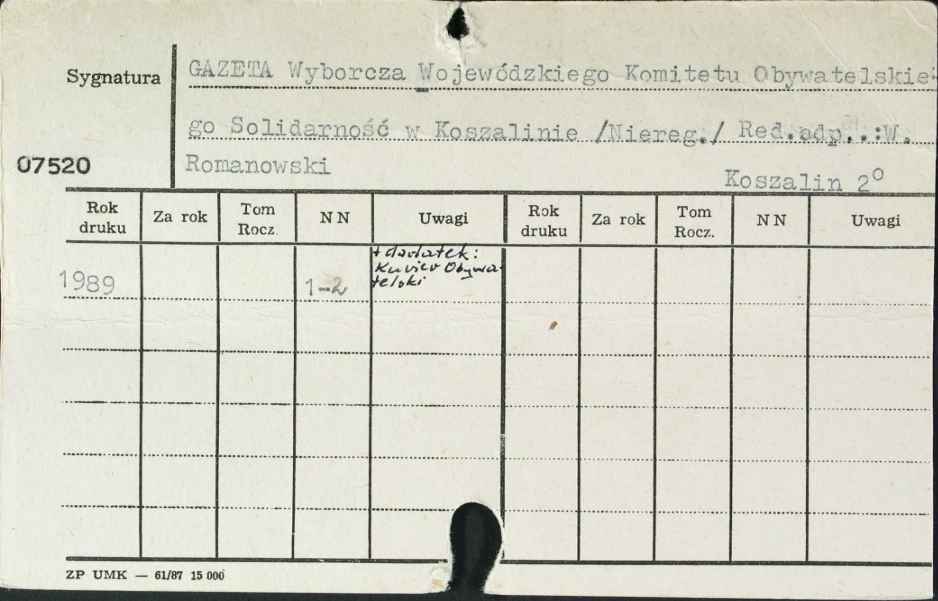 Sygnatura
GAZETA Wyborcza Wojewódzkiego Komitetu Obywatelskie-
go Solidarność w Koszalinie /Niereg./ Red.odp..:W.
07520
Romanowski
Koszalin 2°
Rok druku Za rok Tom Rocz. N N Uwagi Rok druku Za rok Tom Rocz. N N Uwagi
+ dodatek:
Kurier Obywa-
telski
1989 1-2
ZP UMK — 61/87 15 000